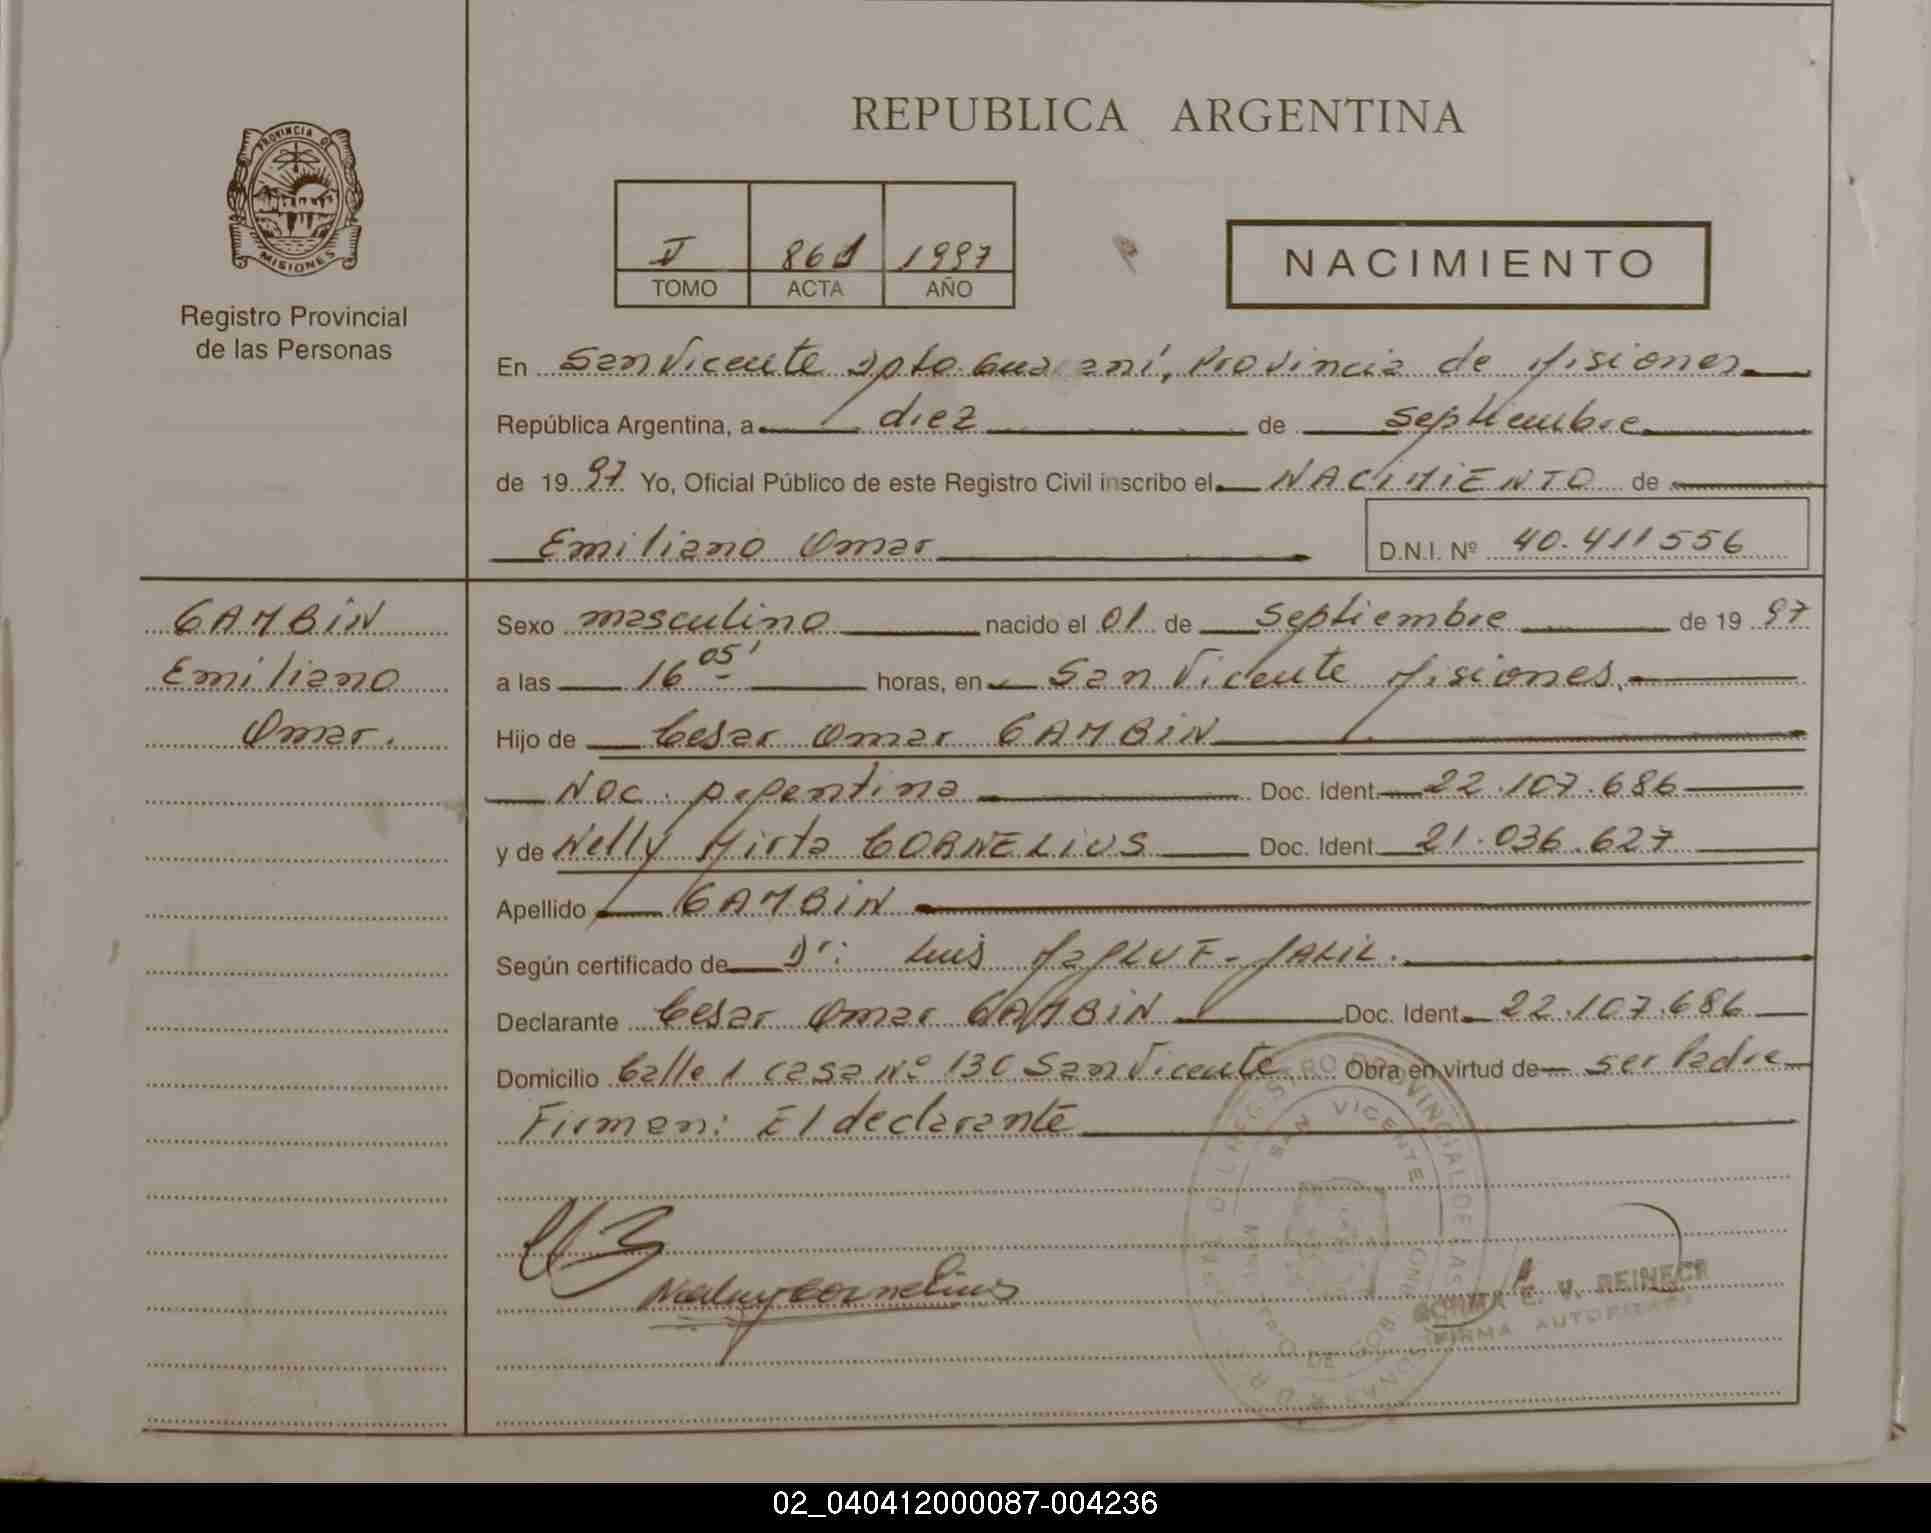 PROVINCIA DE
MISIONES
Registro Provincial
de las Personas
REPUBLICA ARGENTINA
861 1997
TOMO ACTA AÑO
NACIMIENTO
En San Vicente Dpto. Guaraní, Provincia de Misiones
República Argentina, a diez de septiembre
de 1997 Yo, Oficial Público de este Registro Civil inscribo el NACIMIENTO de
Emiliano Omar D.N.I. Nº 40.411556
GAMBIN
Emiliano
Omar.
Sexo masculino nacido el 01 de Septiembre de 1997
a las 16 05' horas, en San Vicente Misiones.
Hijo de Cesar Omar GAMBIN
Nac. Argentina Doc. Ident. 22.107.686
y de Nelly Mirta CORNELIUS Doc. Ident. 21.036.627
Apellido GAMBIN
Según certificado de Dr: Luis JALIL.
Declarante Cesar Omar GAMBIN Doc. Ident. 22.107.686
Domicilio Calle 1 casa Nº 130 San Vicente Obra en virtud de ser Padre
Firman: El declarante
SAN VICENTE
E. V. REINECK
FIRMA AUTORIZADA
02_040412000087-004236